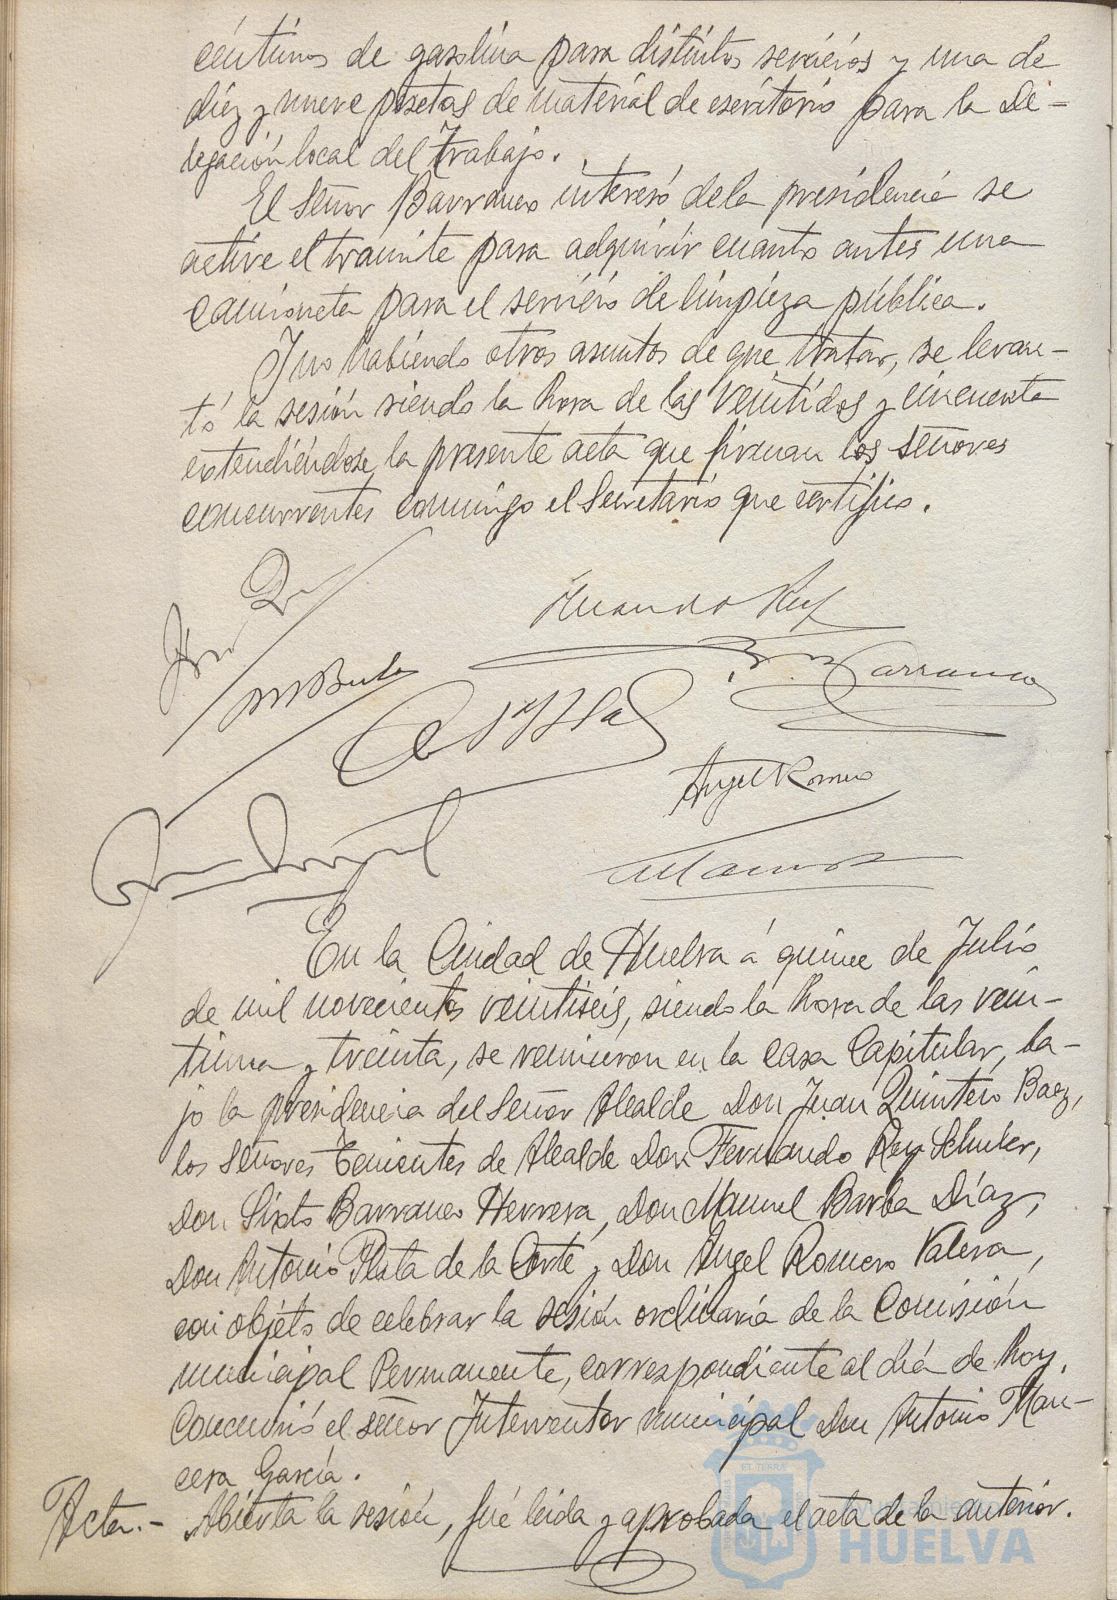 céntimos de gasolina para distintos servicios y una de
diez y nueve pesetas de material de escritorio para la De-
legación local del Trabajo.
El Señor Barranco interesó de la presidencia se
active el trámite para adquirir cuanto antes una
camioneta para el servicio de limpieza pública.
Y no habiendo otros asuntos de que tratar, se levan-
tó la sesión siendo la hora de las veintidos y cincuenta
extendiéndose la presente acta que firman los señores
concurrentes conmigo el Secretario que certifico.
Fernando Rey
Barranco
M Barba
A Plata
Angel Romero
En la Ciudad de Huelva á quince de Julio
de mil novecientos veintiseis, siendo la hora de las vein-
tiuna y treinta, se reunieron en la Casa Capitular, ba-
jo la presidencia del Señor Alcalde Don Juan Quintero Baez,
los Señores Tenientes de Alcalde Don Fernando Rey Schuler,
Don Sixto Barranco Herrera, Don Manuel Barba Díaz,
Don Antonio Plata de la Corte y Don Angel Romero Valera,
con objeto de celebrar la sesión ordinaria de la Comisión
municipal Permanente, correspondiente al día de hoy.
Concurrió el señor Interventor municipal Don Antonio Man-
cera García.
Acta.- Abierta la sesión, fué leida y aprobada el acta de la anterior.
Ayuntamiento de
HUELVA